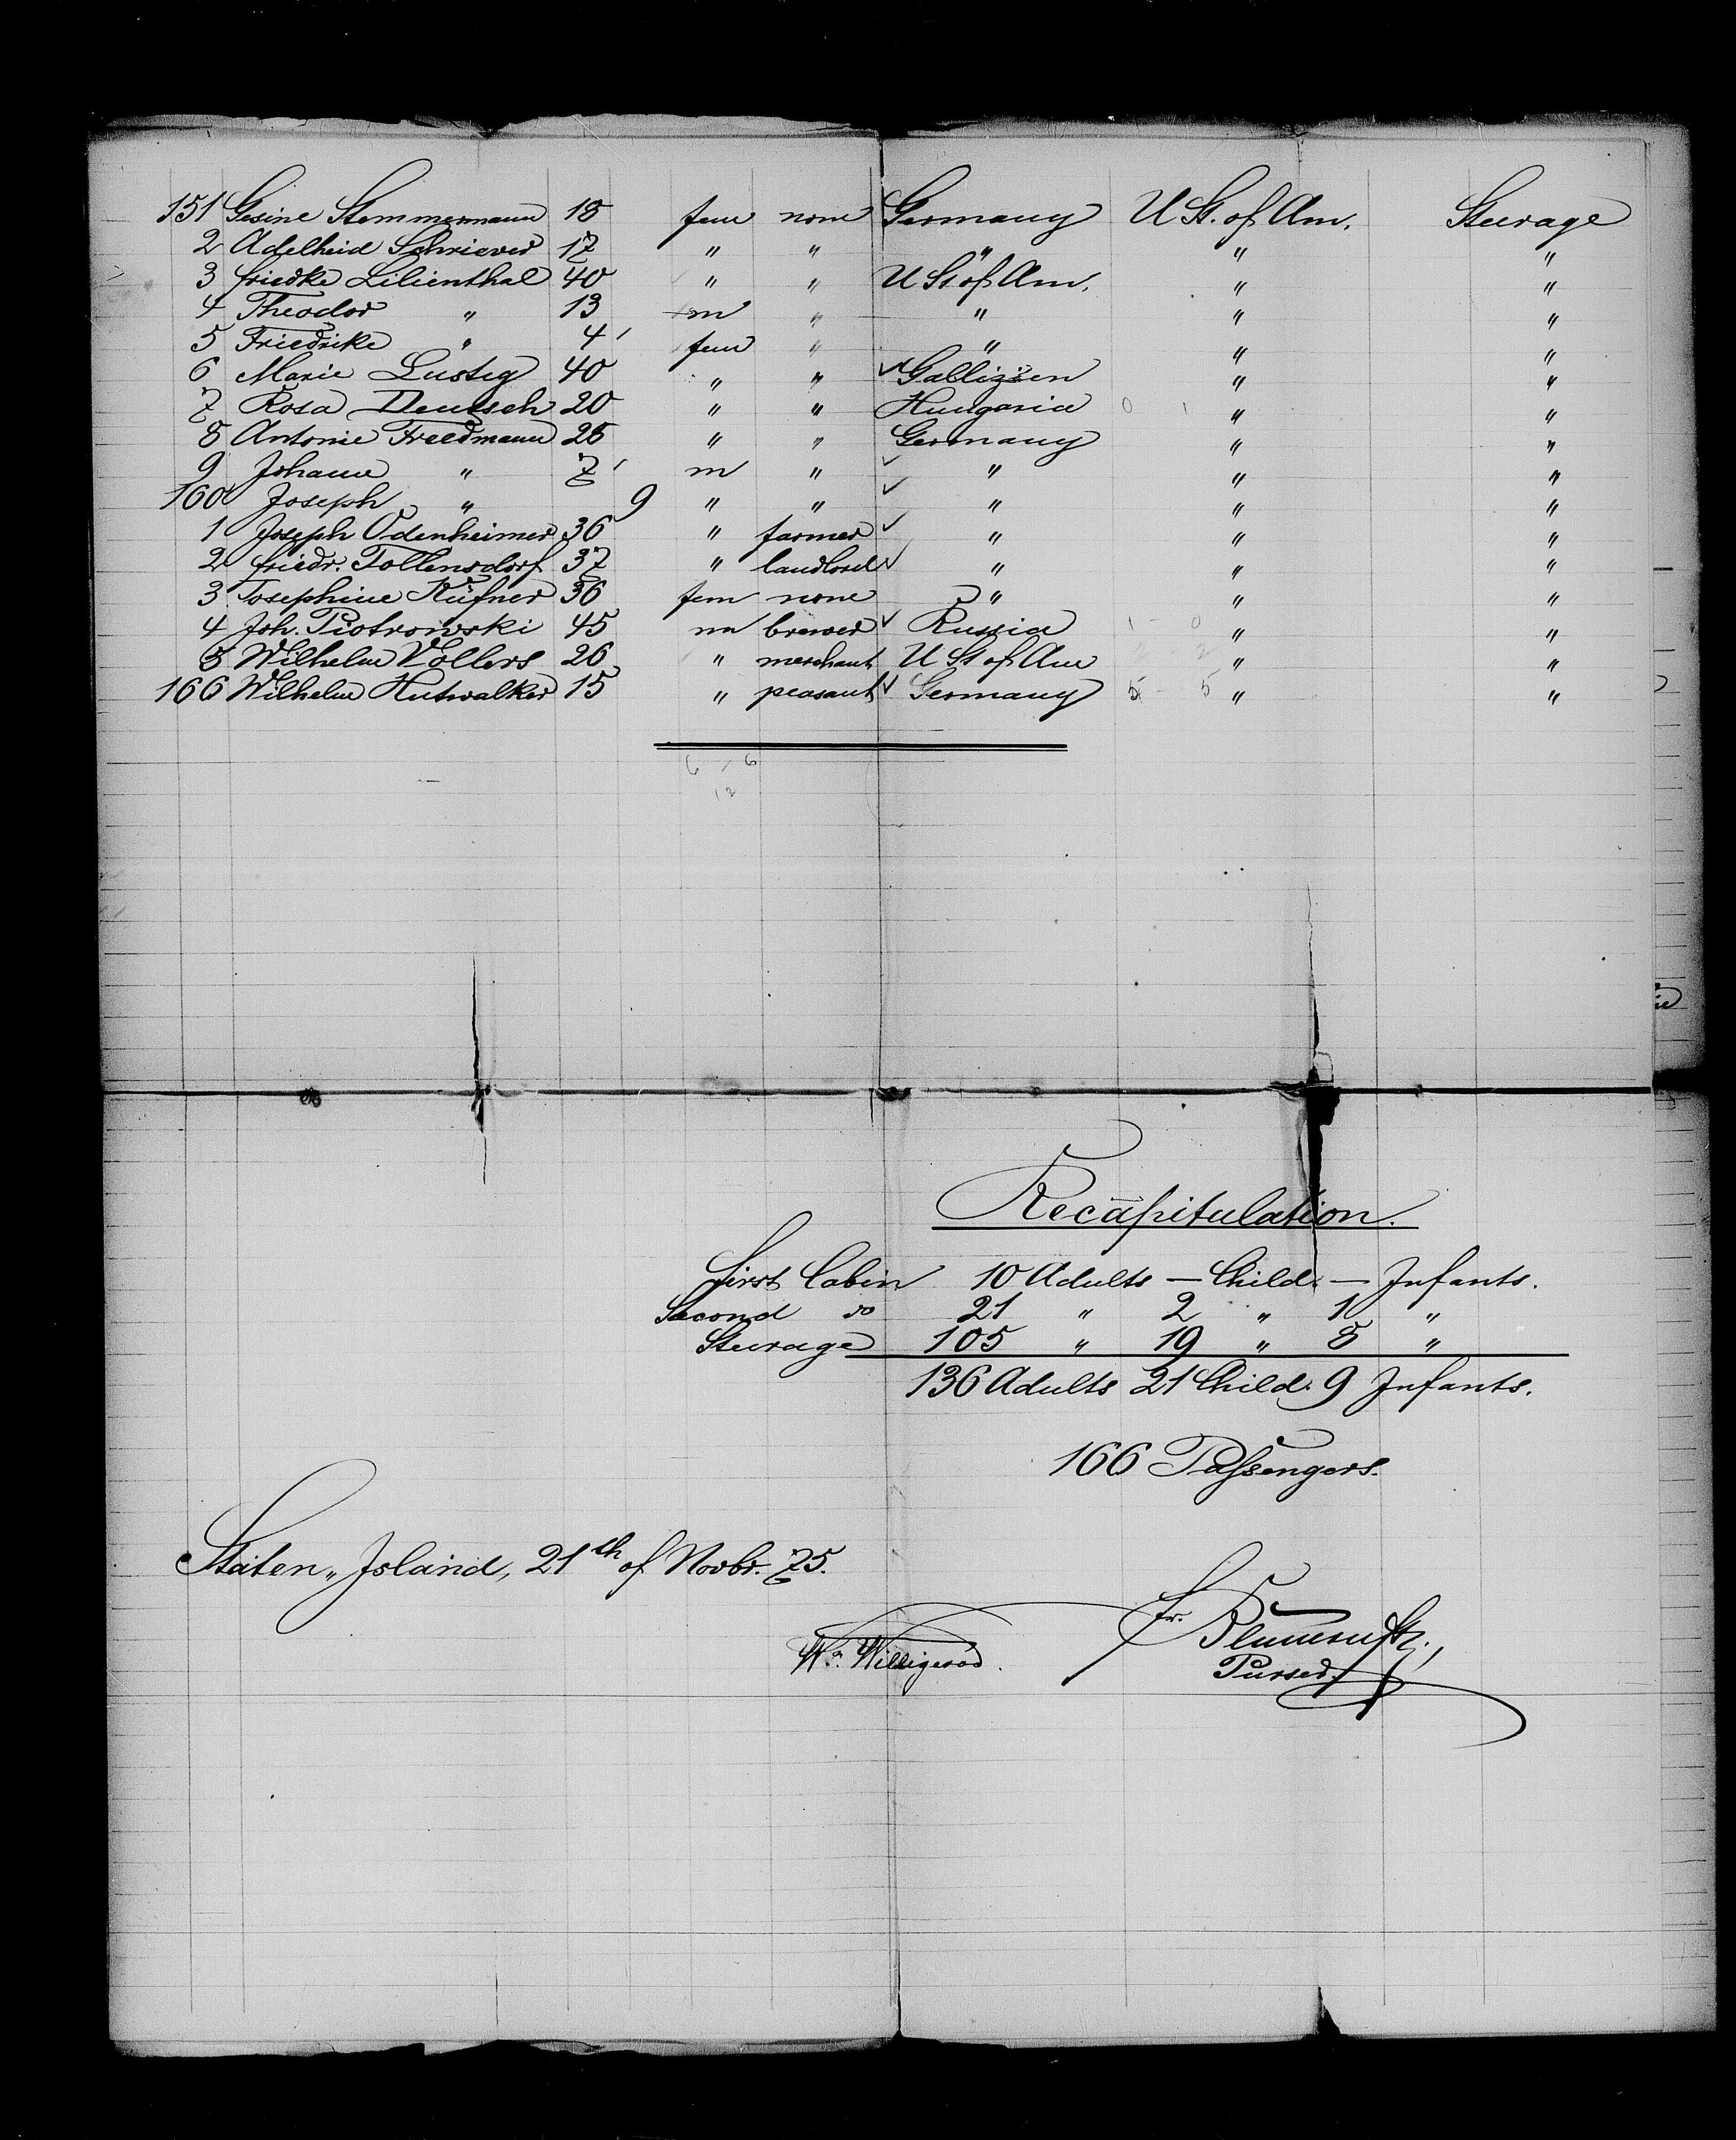 151 Gesine Stemmermann 18 fem none Germany U St. of Am. Steerage
2 Adelheid Schriever 17 " " " " "
3 Friedke Lilienthal 40 " " U St of Am. " "
4 Theodor " 13 m " " " "
5 Friedrike " 4 fem " " " "
6 Marie Lustig 40 " " Gallizien " "
7 Rosa Deutsch 20 " " Hungaria " "
8 Antonie Freedmann 28 " " Germany " "
9 Johann " 7 m " " " "
160 Joseph " 9 " " " " "
1 Joseph Odenheimer 36 " farmer " " "
2 Friedr. Tollensdorf 37 " landlord " " "
3 Josephine Küfner 36 fem none " " "
4 Joh. Piotrowski 45 m brewer Russia " "
5 Wilhelm Vollers 26 " merchant U St of Am " "
166 Wilhelm Hutwalker 15 " peasant Germany " "
6 - 6
12
Recapitulation.
First Cabin 10 Adults — Child. — Infants.
Second do 21 " 2 " 1 "
Steerage 105 " 19 " 8 "
136 Adults 21 Child. 9 Infants.
166 Passengers.
Staten Island, 21th of Novbr. 75.
Willigerod.
Fr.
Purser.